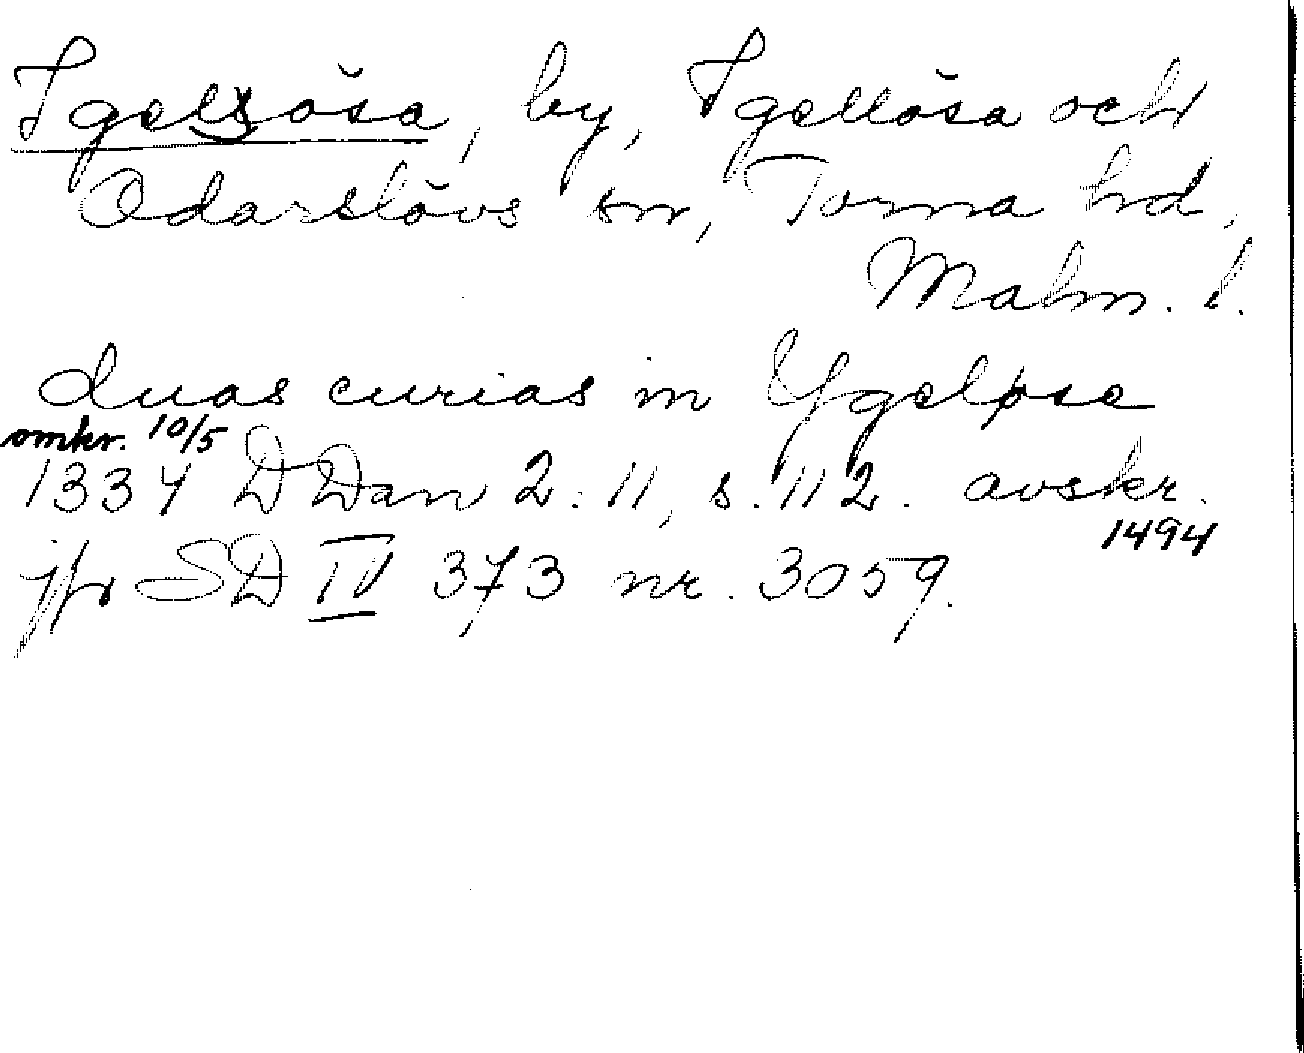 Igelsösa, by, Igellösa och
Odarslövs sn, Torna hd,
Malm. l.
duas curias in Ygeløse
omkr. 10/5
1334 DDan 2:11, s. 112. avskr.
1494
jfr SD IV 373 nr. 3059.